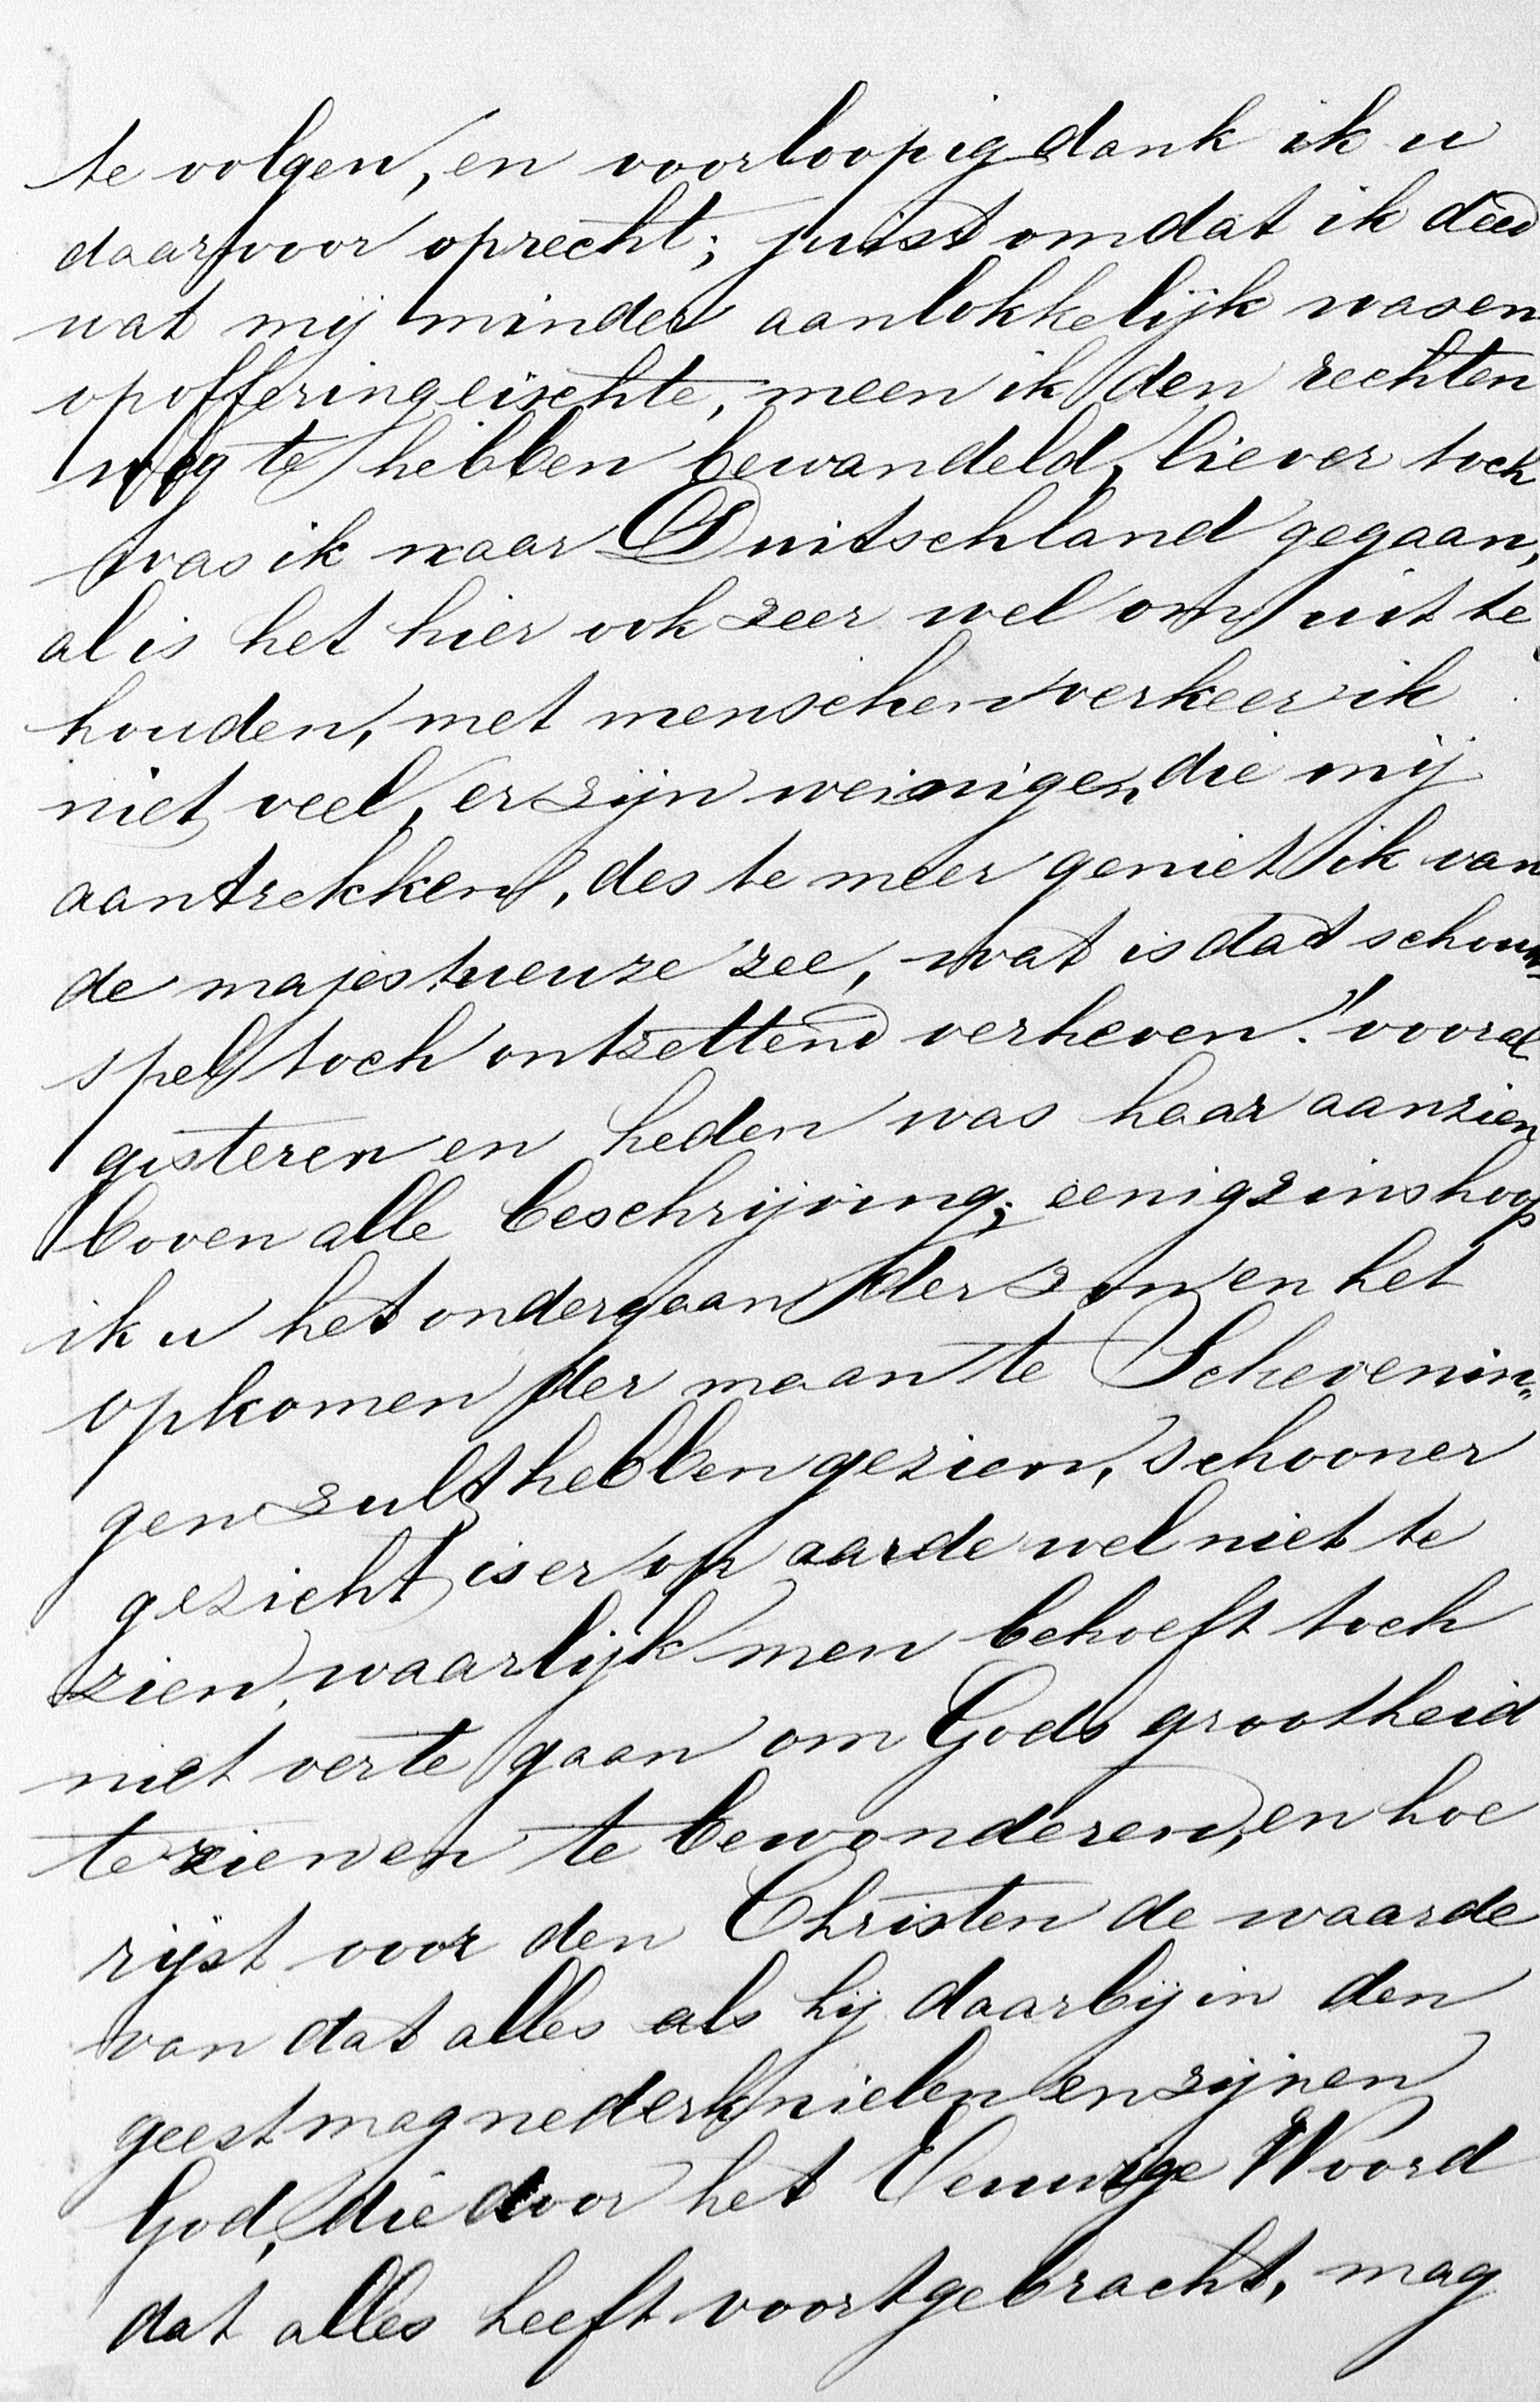 te volgen, en voorloopig dank ik u
daarvoor oprecht; juist omdat ik deed
wat mij minder aanlokkelijk was en
opoffering eischte, meen ik den rechten
weg te hebben bewandeld, liever toch
was ik naar Duitschland gegaan,
al is het hier ook zeer wel om uit te
houden, met menschen verkeer ik
niet veel, er zijn weinigen die mij
aantrekken, des te meer geniet ik van
de majestueuze zee, wat is dat schouw-
spel toch ontzettend verheven! vooral
gisteren en heden was haar aanzien
boven alle beschrijving; eenigzins hoop
ik u het ondergaan der zon en het
opkomen der maan te Schevenin„
gen zult hebben gezien, schooner
gezicht is er op aarde wel niet te
zien, waarlijk men behoeft toch
niet ver te gaan om Gods grootheid
te zien en te bewonderen, en hoe
rijst voor den Christen de waarde
van dat alles als hij daarbij in den
geest mag nederknielen en zijnen
God, die door het Eeuwige Woord
dat alles heeft voortgebracht, mag